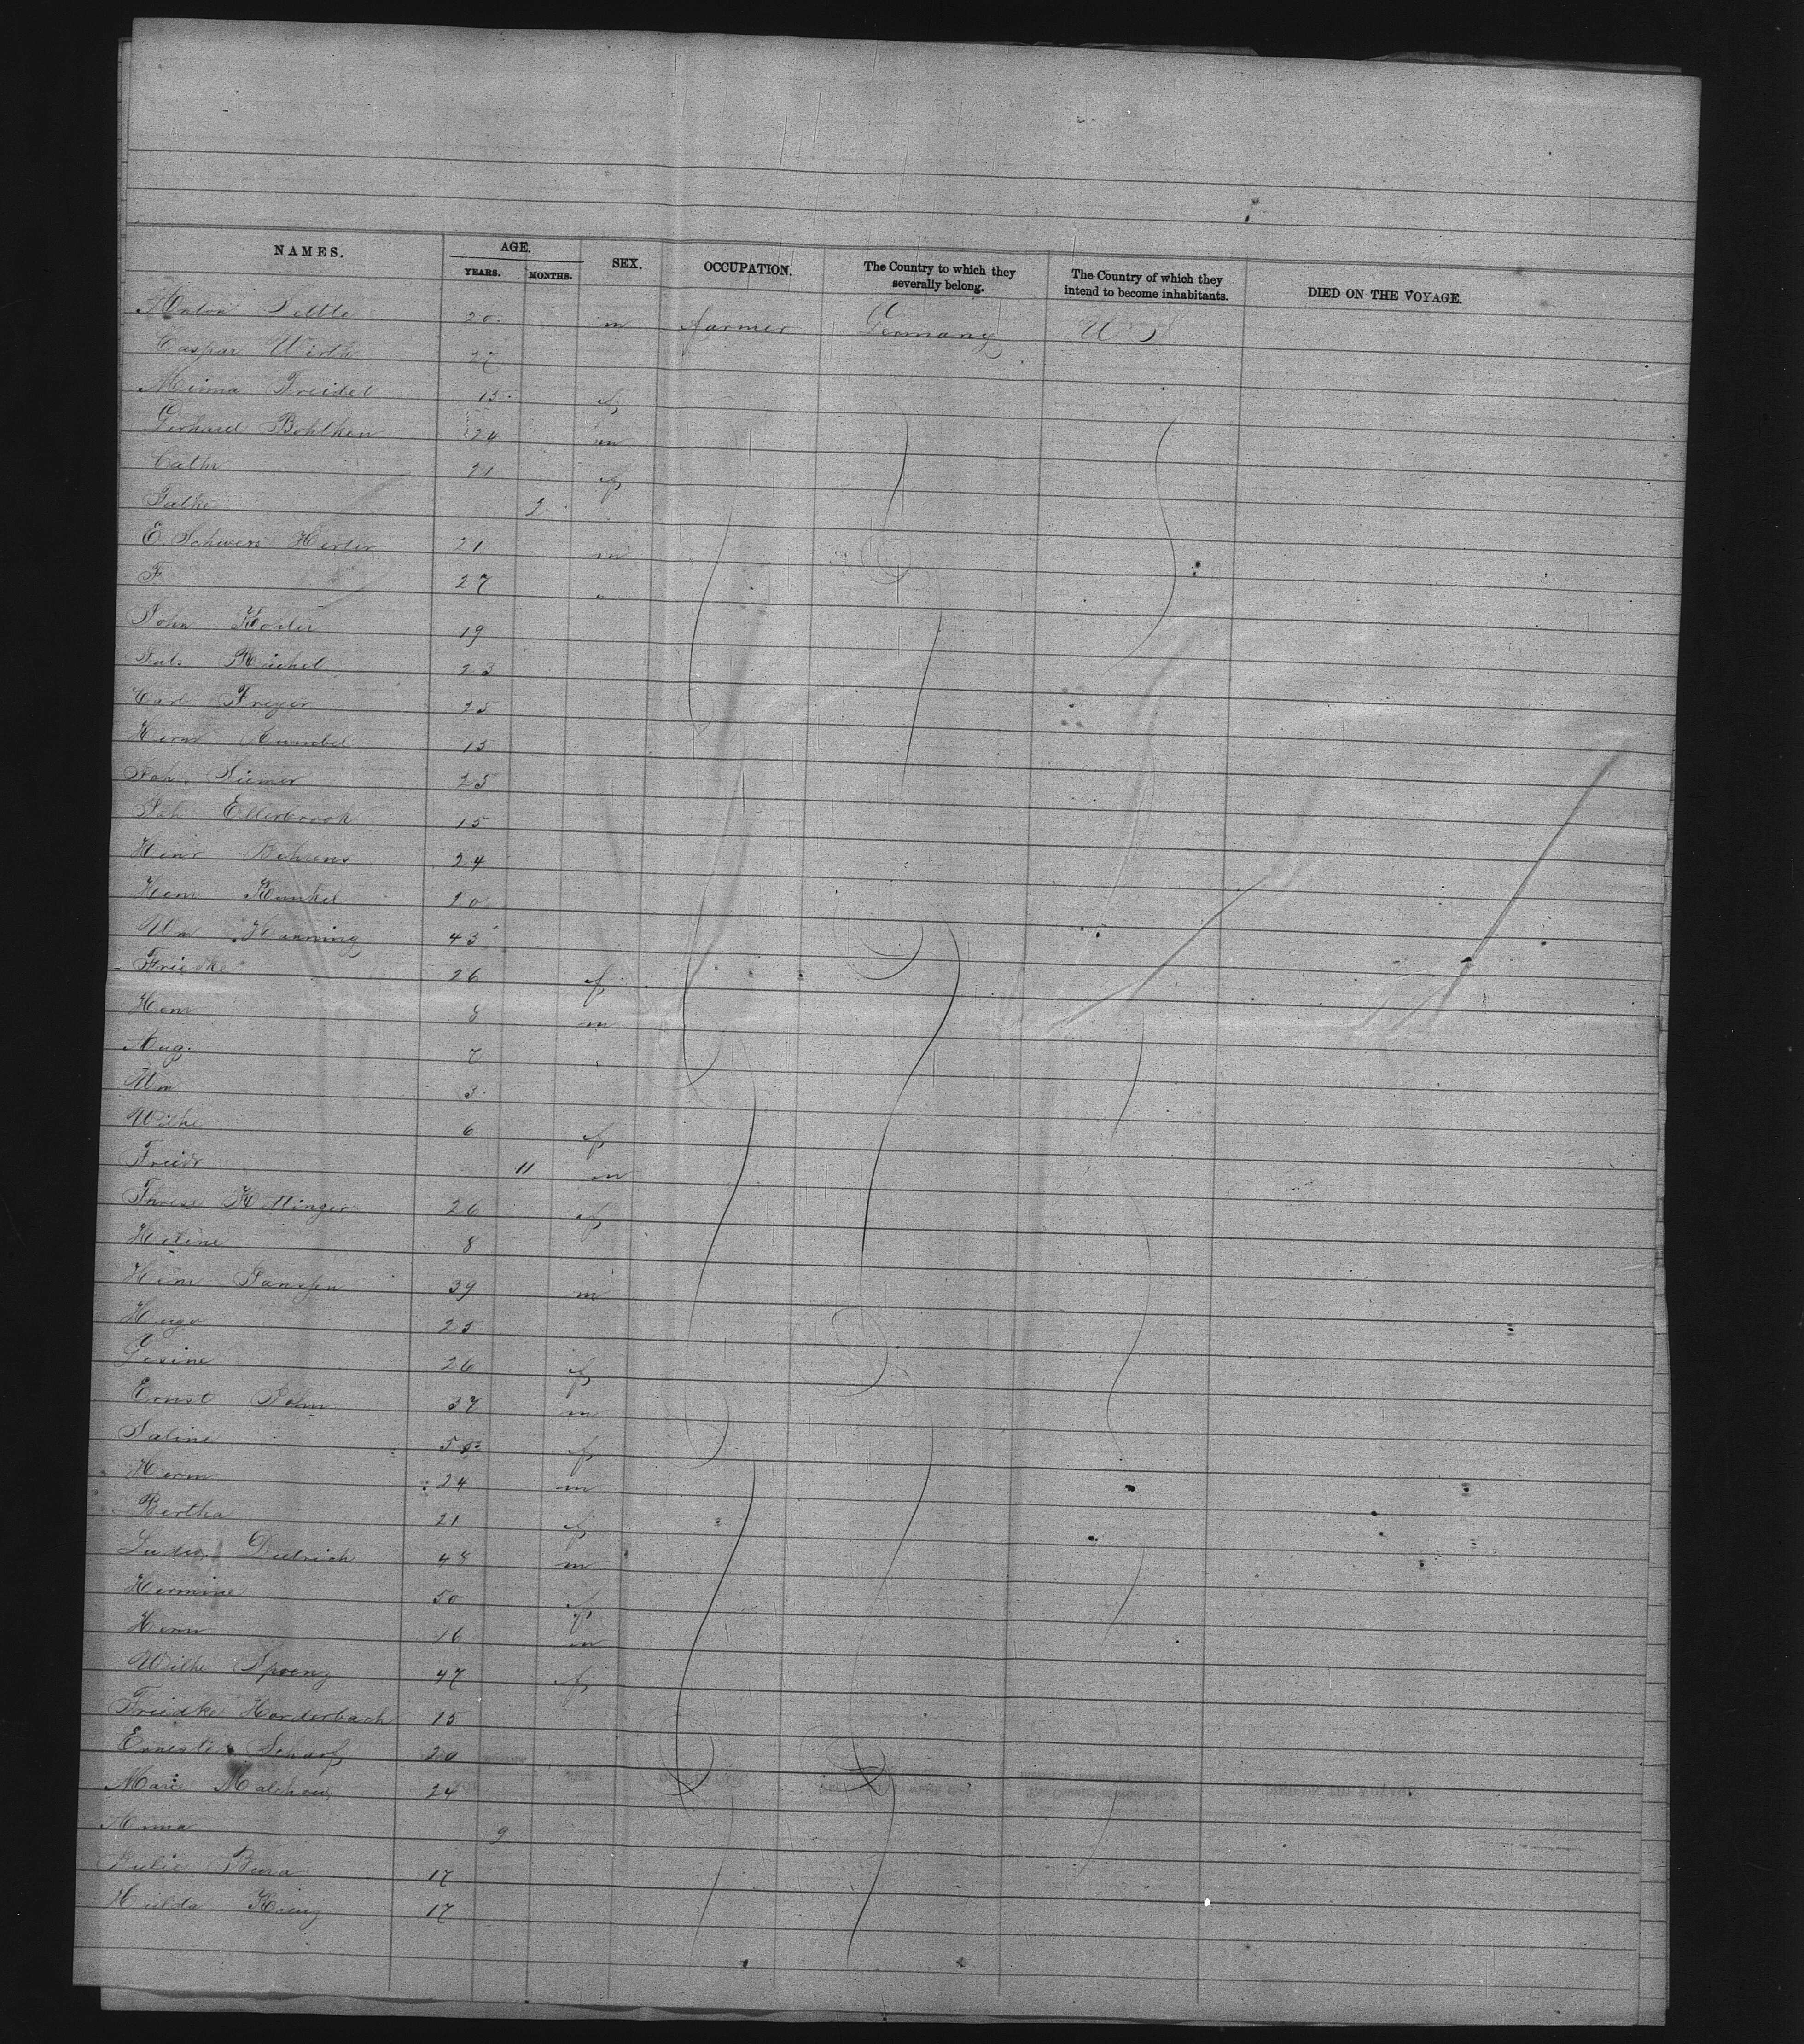 NAMES. AGE. SEX. OCCUPATION. The Country to which they severally belong. The Country of which they intend to become inhabitants. DIED ON THE VOYAGE.
YEARS. MONTHS.
Anton Settle 20 m farmer Germany U S
Caspar Wirth 27
Minna Freidel 15 f
Gerhard Bohlken 24 m
Cathr 21 f
Talke 2
E. Schwers Herter 21 m
F 27 "
John Kohler 19
Jul. Reichel 23
Carl Freyer 25
Herm Rumbel 15
Joh. Siemer 25
Joh Ellerbrook 15
Heinr Behrens 24
Herm Runkel 20
Wm Hanning 43
Friedke 26 f
Herm 8 m
Aug. 7
Wm 3
Wilhe 6 f
Friedr 11 m
Therese Hollinger 26 f
Helene 8
Heinr Janssen 39 m
Hugo 25
Gesine 26 f
Ernst John 37 m
Saline f
Herm 24 m
Bertha 21 f
Ludw. Dietrich 48 m
Hermine 50 f
Herm 16 m
Wilhe Spreng 47 f
Friedke Harderbach 15
Ernestin Scharf 20
Marie Malchow 24
Anna 9
Julie Bura 17
Hulda King 17